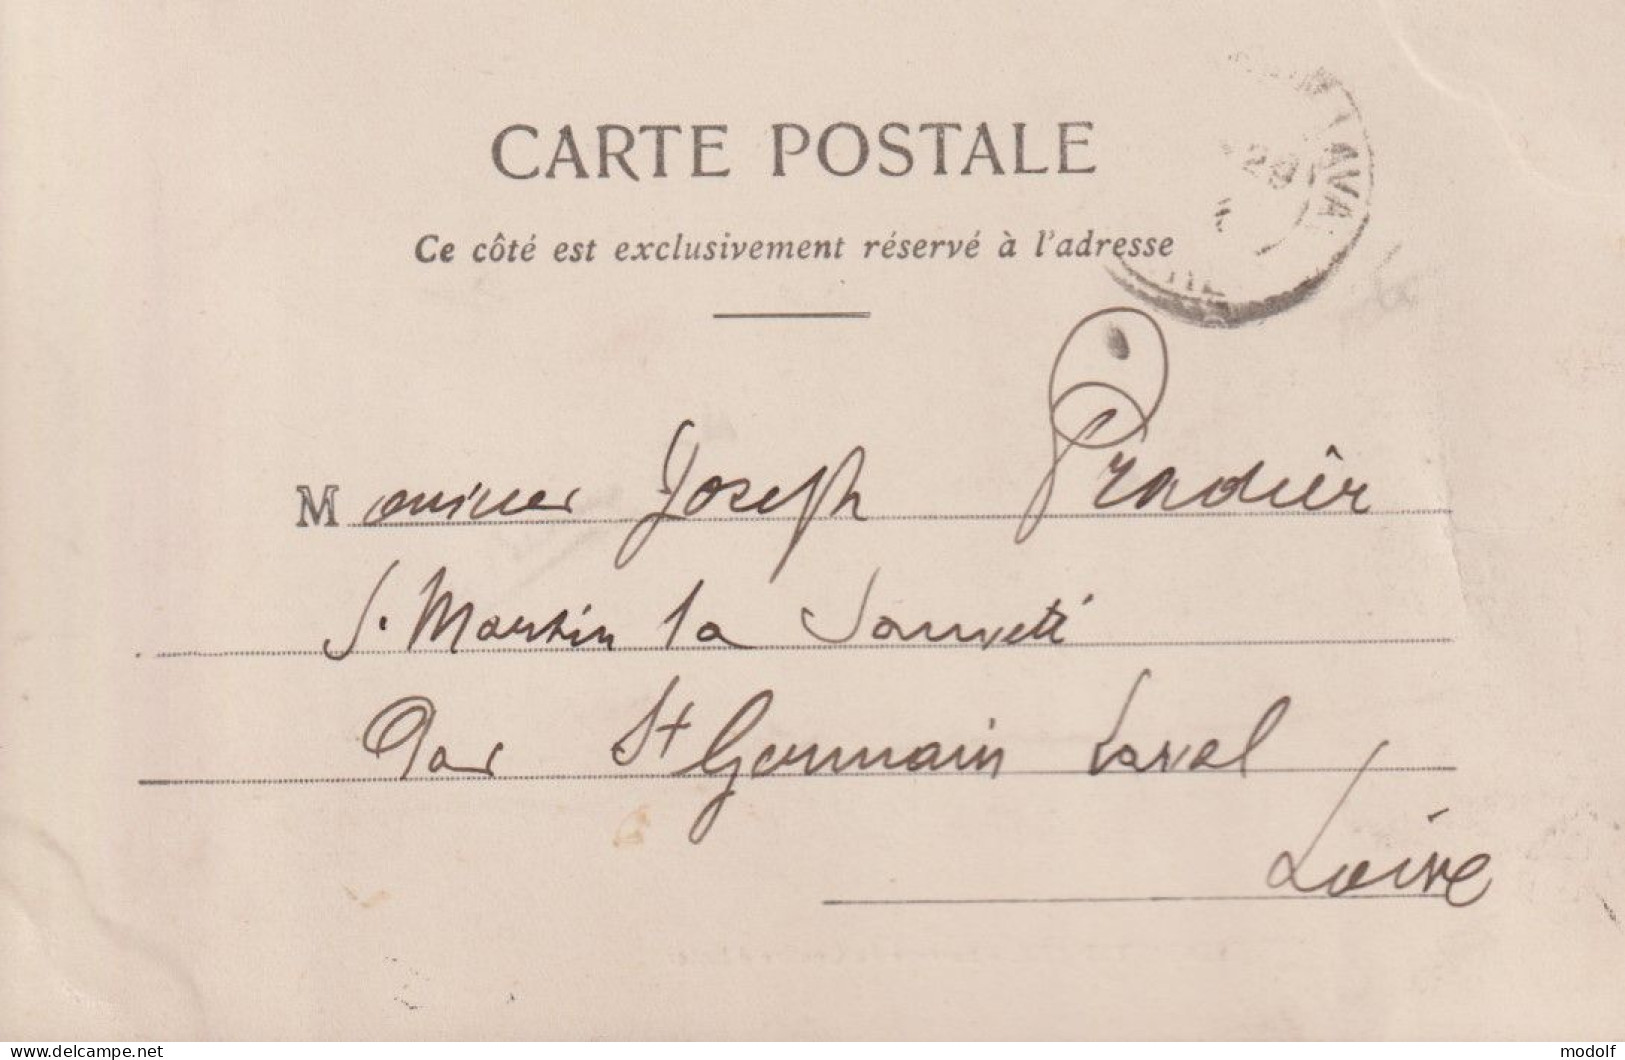 CARTE POSTALE
Ce côté est exclusivement réservé à l'adresse
29
Monsieur Joseph Pradier
S. Martin la Sauveté
Par St Germain Laval
Loire
www.delcampe.net
modolf